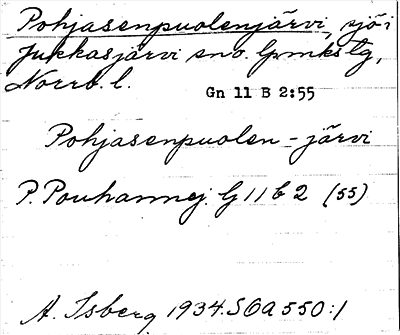 Pohjasenpuolenjärvi, sjö i
Jukkasjärvi snv. lpmkstg,
Norrb. l.
Gn 11 B 2:55
Pohjasenpuolen-järvi
P. Pouhannej. G 11 b 2 (55)
A. Isberg 1934. SOA 550:1